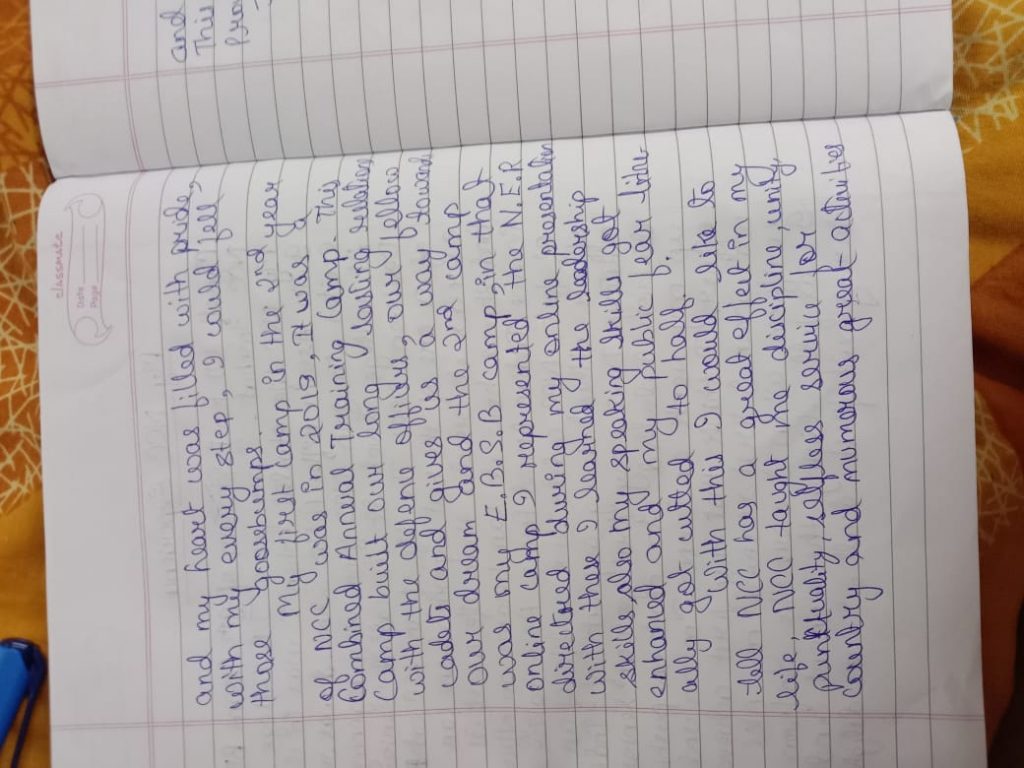 classmate
Date
Page
and my heart was filled with pride,
with my every step, I could fell
those goosebumps.
My first camp in the 2nd year
of NCC was in 2019, It was a
Combined Annual Training Camp. This
Camp built our long lasting relation
with the defence officers, our fellow
cadets and gives us a way toward
our dream and the 2nd camp
was my E.B.S.B camp, in that
online camp I represented the N.E.R
directorod during my online presentation
with these I learned the leadership
skills, also my speaking skills got
enhanced and my public fear liter-
ally got cutted to half.
With this I would like to
tell NCC has a great effect in my
life, NCC taught me discipline, unity,
punctuality, selfless service for
country and numorous great activities
and
This